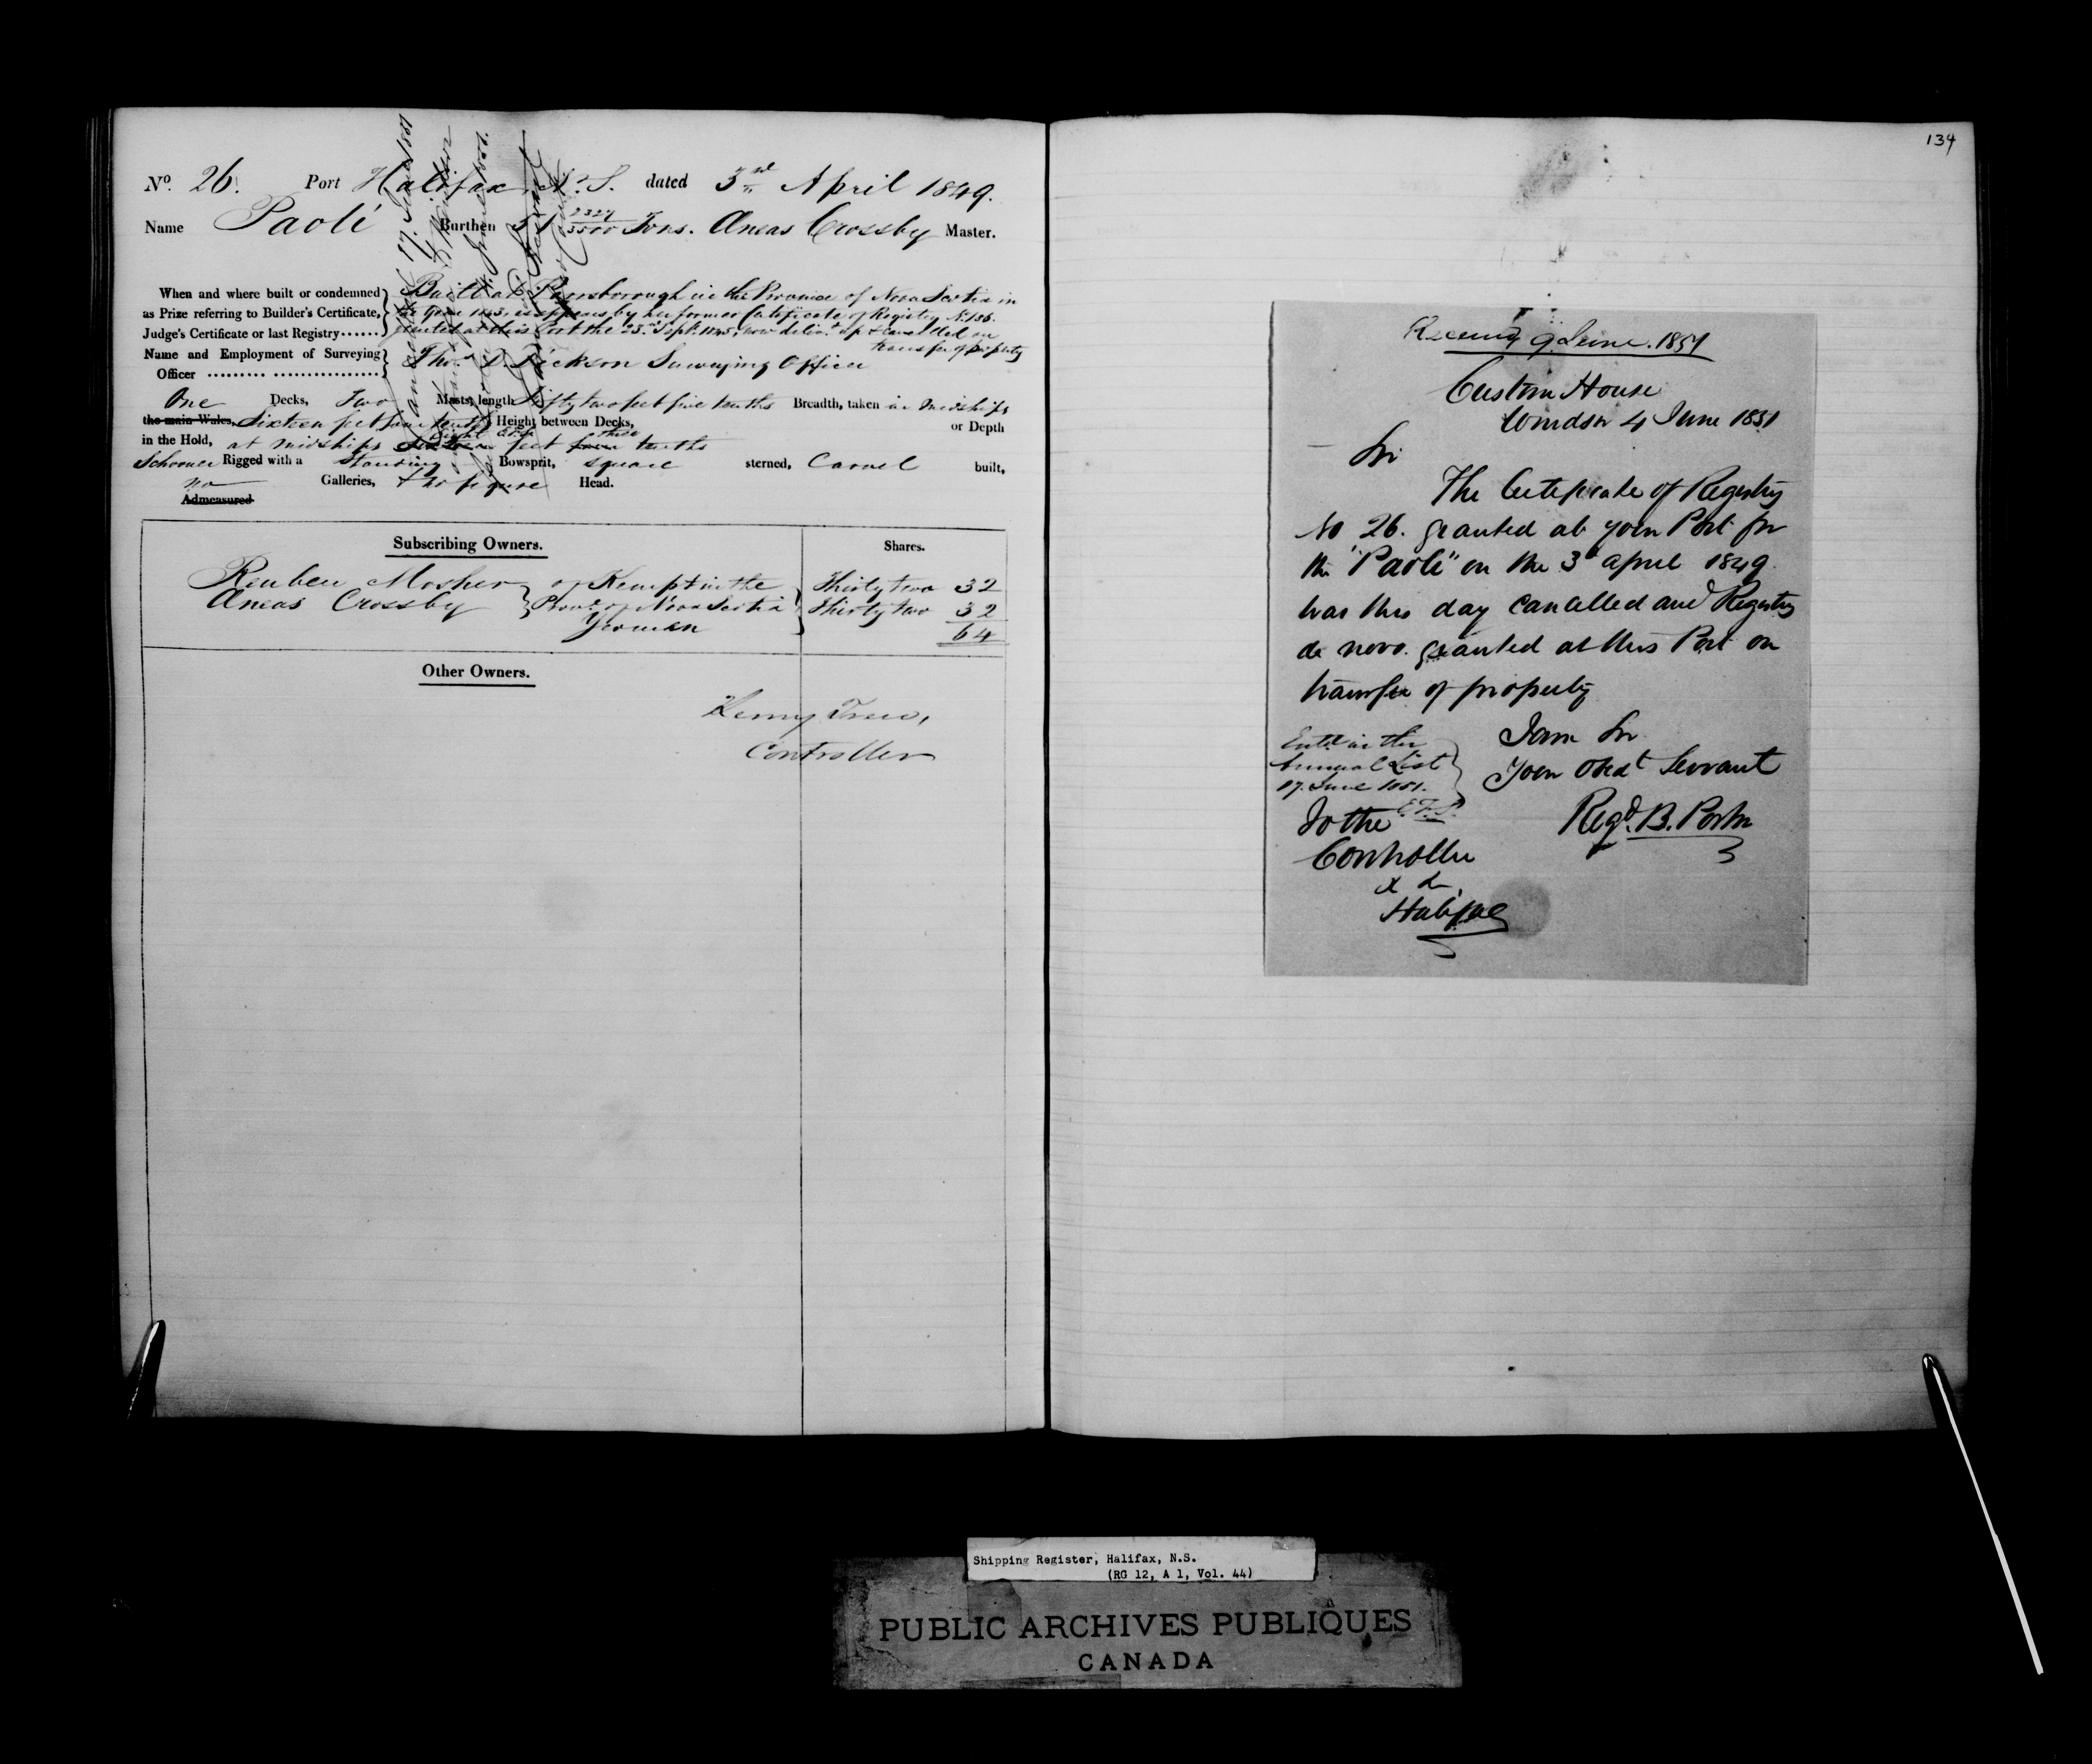 No. 26. Port Halifax N. S. dated 3rd April 1849.
Name Paoli Burthen 51 2327/3500 Tons. Æneas Crossby Master.
When and where built or condemned as Prize referring to Builder's Certificate, Judge's Certificate or last Registry......
Built at Parrsborough in the Province of Nova Scotia in
the year 1845, as appears by her former Certificate of Registry No. 136.
granted at this Port the 23rd Sept. 1845, now deliv.d up & cancelled on
transfer of property
Name and Employment of Surveying Officer ......... ................ Thos. D. Dickson Surveying Officer
One Decks, Two Masts, length Fifty two feet five tenths Breadth, taken in midships
the main Wales, Sixteen feet four tenths Height between Decks, or Depth
in the Hold, at midships Eight feet three tenths
Schooner Rigged with a Standing Bowsprit, square sterned, Carvel built,
no Galleries, & no figure Head.
Admeasured
Subscribing Owners. Shares.
Reuben Mosher of Kempt in the Thirty two 32
Æneas Crossby Prov. of Nova Scotia Thirty two 32
Yeomen 64
Other Owners.
Henry Trew,
Controller
134
Received 9 June. 1851
Custom House
Windsor 4 June 1851
Sir
The Certificate of Registry
No 26. granted at your Port for
the "Paoli" on the 3d April 1849
was this day cancelled and Registry
de novo. granted at this Port on
transfer of property
I am Sir
Your Obedt Servant
Regd. B. Porter
Entd in the
Annual List
17. June 1851.
E.F.S.
To the
Controller
&c
Halifax
Shipping Register, Halifax, N.S.
(RG 12, A 1, Vol. 44)
PUBLIC ARCHIVES PUBLIQUES
CANADA